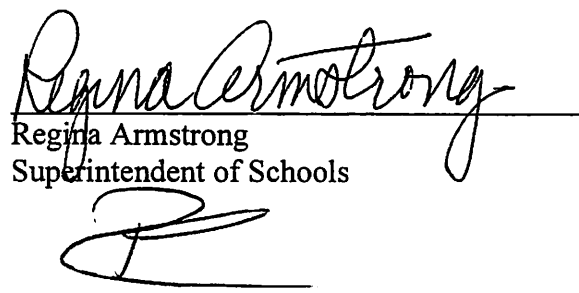 Regina Armstrong
Regina Armstrong
Superintendent of Schools